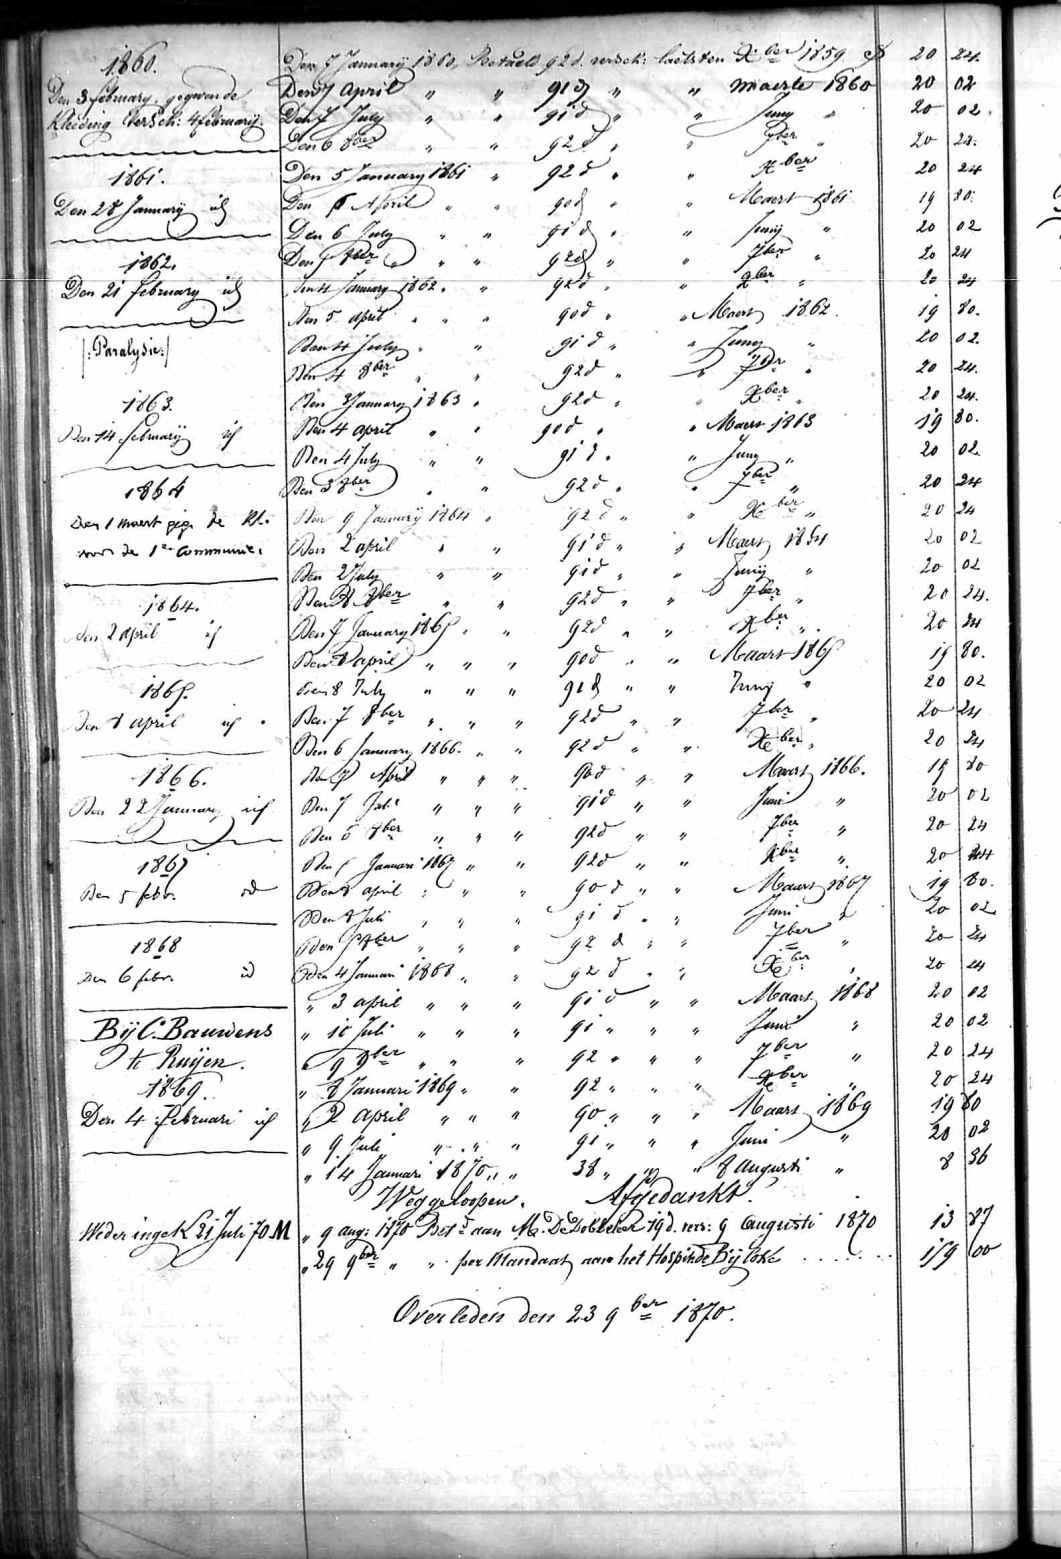 1860.
Den 3 february, gegevende
Kleeding Versch: 4 february
1861.
Den 28 January id
1862.
Den 21 february id
/: Paralysie :/
1863.
Den 14 february id
1864
Den 1 maert geg. de Kl.
voor de 1e Communie.
1864.
Den 2 april id
1865.
Den 8 april id
1866.
Den 22 January id
1867
Den 5 febr. id
1868
Den 6 febr. id
Bij C. Bauwens
te Ruijen.
1869.
Den 4 februari id
Weder ingek 21 Juli 70 M
Den 7 January 1860, Betaeld 92 d. versch: laetsten Xber 1859 20 24
Den 7 April " " 91 d " " Maerte 1860 20 02
Den 7 July " " 91 d " " Juny " 20 02
Den 6 8ber " " 92 d " " 7ber " 20 24
Den 5 January 1861 " 92 d " " Xber 20 24
Den 6 April " " 90 d " " Maert 1861 19 80
Den 6 July " " 91 d " " Juny " 20 02
Den 8ber " " 92 d " " 7ber " 20 24
Den 4 January 1862. " 92 d " Xber " 20 24
Den 5 april " " 90 d " Maert 1862 19 80.
Den 4 July " " 91 d " " Juny " 20 02
Den 4 8ber " " 92 d " " 7ber " 20 24.
Den 3 January 1863 " 92 d " " Xber 20 24.
Den 4 april " " 90 d " " Maert 1863 19 80.
Den 4 July " " 91 d. " Juny " 20 02
Den 3 8ber " " 92 d " " 7ber " 20 24
Den 9 January 1864 " 92 d " " Xber " 20 24
Den 2 april " " 91 d " " Maert 1864 20 02
Den 2 July " " 91 d " " Juny " 20 02
Den 8ber " " 92 d " " 7ber " 20 24.
Den 7 January 1865 " " 92 d " " Xber " 20 24
Den 8 april " " " 90 d " " Maart 1865 19 80.
Den 8 July " " " 91 d " " Juny " 20 02
Den 7 8ber " " " 92 d " " 7ber " 20 24
Den 6 January 1866. " " 92 d " " Xber " 20 24
Den 7 April " " " 90 d " " Maart 1866. 19 80
Den 7 Juli " " " 91 d " " Juni " 20 02
Den 6 8ber " " " 92 d " " 7ber " 20 24
Den 5 Januari 1867 " " 92 d " " Xber " 20 24
Den 8 april " " " 90 d " " Maart 1867 19 80.
Den 8 Juli " " " 91 d " " Juni " 20 02
Den 8ber " " " 92 d " " 7ber " 20 24
Den 4 Januari 1868 " " 92 d " " Xber " 20 24
" 3 april " " " 91 d " " Maart 1868 20 02
" 10 Juli " " " 91 " " " Juni " 20 02
" 9 8ber " " " 92 " " " 7ber " 20 24
" 8 Januari 1869 " " 92 " " " Xber " 20 24
" 2 april " " " 90 " " " Maart 1869 19 80
" 9 Juli " " " 91 " " " Juni " 20 02
" 14 Januari 1870 " " 38 " " " 8 augusti " 8 36
Weggeloopen. Afgedankt.
" 9 aug: 1870 Betd aan M. De Dobbeleer 19 d. vers: 9 augusti 1870 13 87
" 29 9ber " " per Mandaat aan het Hospitde Bijloke 159 00
Overleden den 23 9ber 1870.